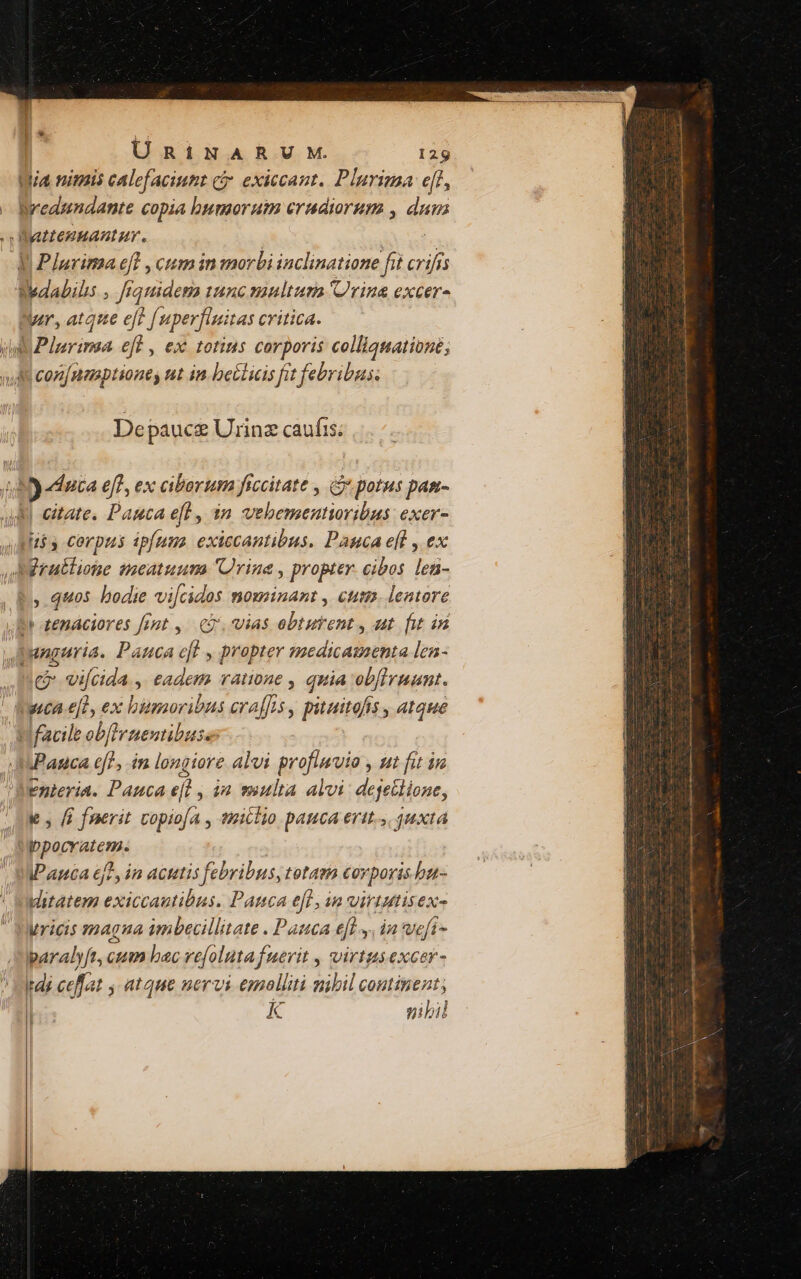 URINARUM. 129
nimis calefaciunt & exiccant. Plurima eſt,
redundante copia humorum crudiorum, dum
attenuantur.
Plurima eſt, cum in morbi inclinatione fit criſis
dabilis, ſiquidem tunc multum Urinæ excer-
, atque eſt ſuperfluitas critica.
Plurima eſt, ex totius corporis colliquatione,
conſumptione, ut in hecticis fit febribus.
De paucæ Urinæ cauſis.
eſt, ex ciborum ſiccitate, & potus pau-
citate. Pauca eſt, in vehementioribus exer-
, corpus ipſum exiccantibus. Pauca eſt, ex
meatuum Urinæ, propter cibos len-
, quos hodie viſcidos nominant, cum lentore
tenaciores ſint, & vias obturent, ut fit in
. Pauca eſt, propter medicamenta len-
& viſcida, eadem ratione, quia obſtruunt.
eſt, ex humoribus craſſis, pituitoſis, atque
facile obſtruentibus.
Pauca eſt, in longiore alvi profluvio, ut fit in
enteria. Pauca eſt, in multa alvi dejectione,
, ſi fuerit copioſa, mictio pauca erit, juxta
ppocratem.
Pauca eſt, in acutis febribus, totam corporis hu-
ditatem exiccantibus. Pauca eſt, in virtutis ex-
tricis magna imbecillitate. Pauca eſt, in veſi-
paralyſi, cum hac reſoluta fuerit, virtus excer-
di ceſſat, atque nervi emolliti nihil continent,
K nihil